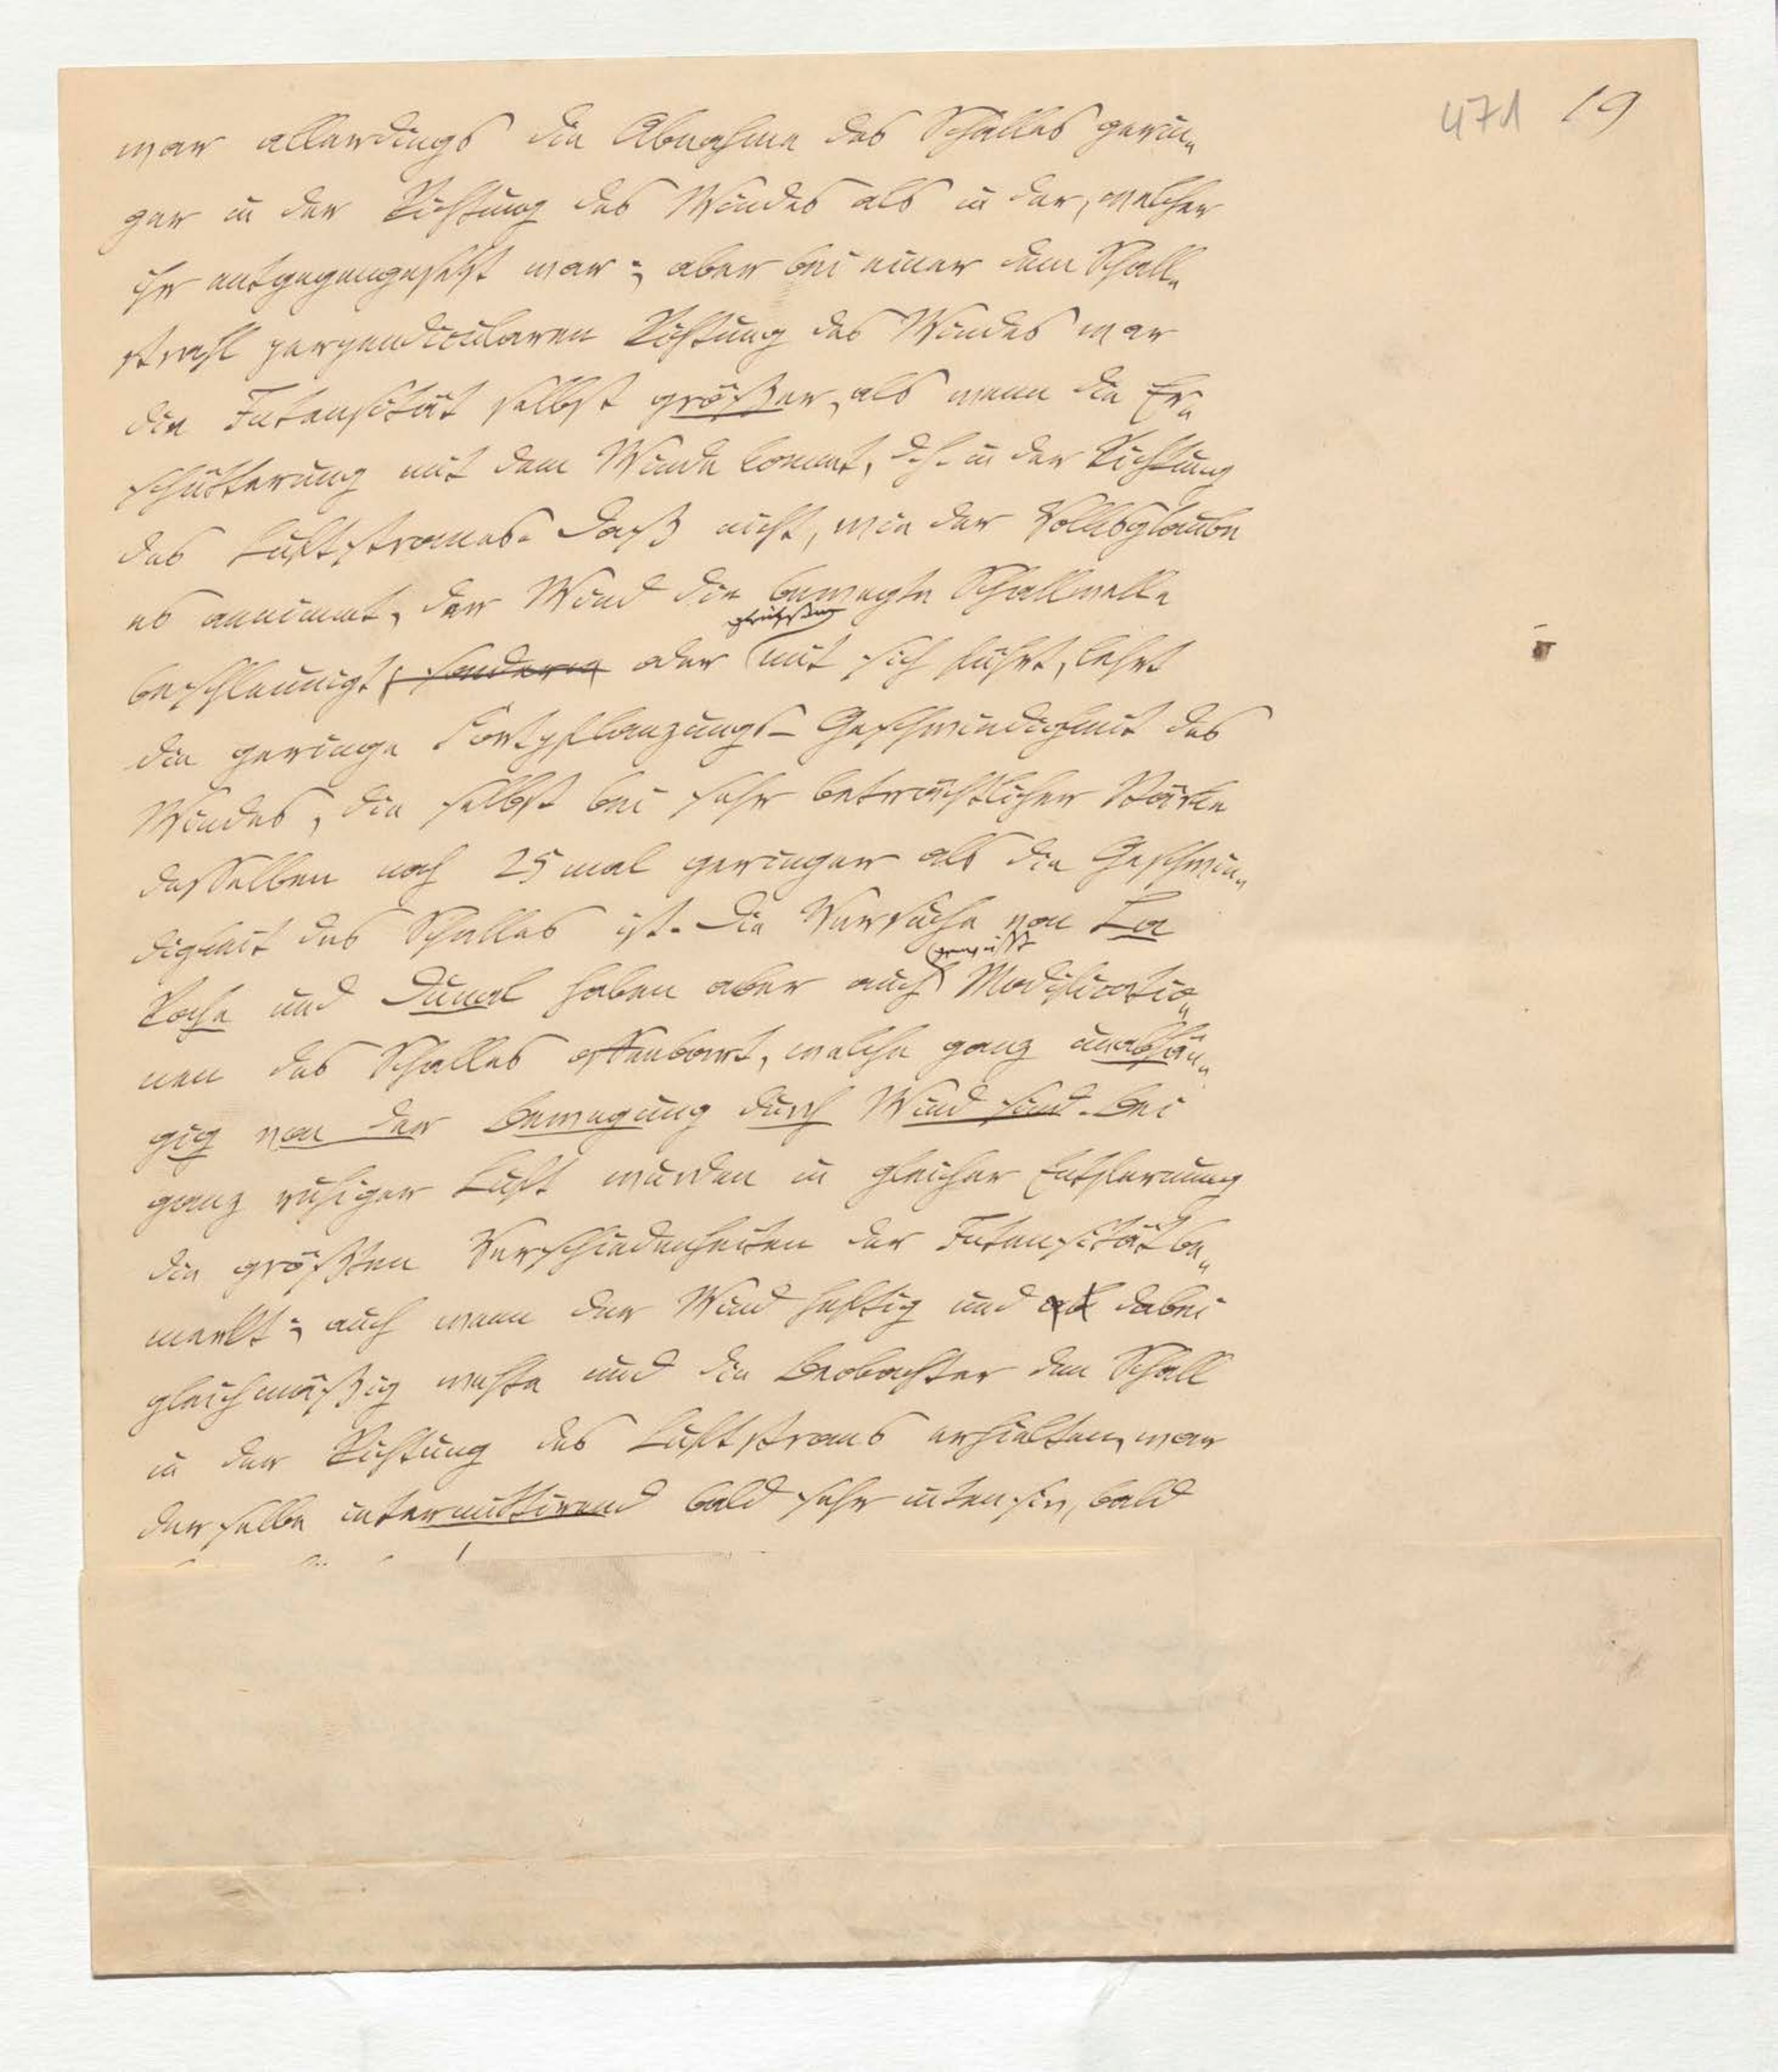 471 19
war allerdings die Abnahme des Schalles gerin-
ger in der Richtung des Windes als in der, welcher
ihr entgegengesetzt war; aber bei einer dem Schall-
strahl perpendicularen Richtung des Windes war
die Intensität selbst größer, als wenn die Er-
schütterung mit dem Winde kommt, d. h. in der Richtung
des Luftstromes. Daß nicht, wie der Volksglaube
es annimmt, der Wind die bewegte Schallwelle
gleichsam
beschleunigt, sondern oder mit sich führt, lehrt
die geringe Fortpflanzungs-Geschwindigkeit des
Windes, die selbst bei sehr beträchtlicher Stärke
desselben noch 25 mal geringer als die Geschwin-
digkeit des Schalles ist. Die Versuche von La
Roche und Dunal haben aber auch Modificatio-
nen des Schalles offenbart, welche ganz unabhän-
gig von der Bewegung durch Wind sind. Bei
ganz ruhiger Luft wurden in gleicher Entfernung
die größten Verschiedenheiten der Intensität be-
merkt; auch wenn der Wind heftig und dabei
gleichmäßig wehte und die Beobachter den Schall
in der Richtung des Luftstroms erhielten, war
derselbe intermittirend bald sehr intensiv, bald